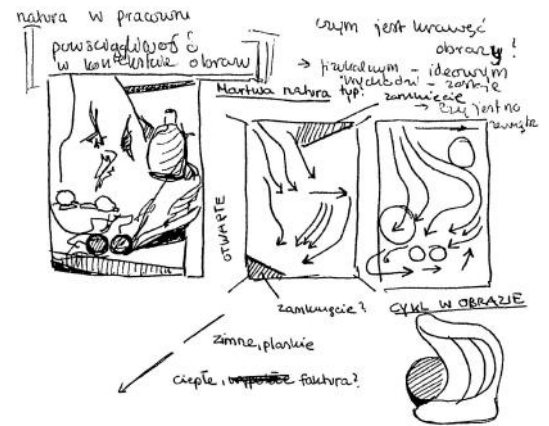 natura w pracowni
powściągliwość
w kontekście obrazu
czym jest krawędź
obrazu?
→ fizykalnym - ideowym
wychodzi - zostaje
Martwa natura typ:
zamknięcie
→ czy jest na
zewnątrz
OTWARTE
zamknięcie?
CYKL W OBRAZIE
zimne, płaskie
ciepłe, faktura?